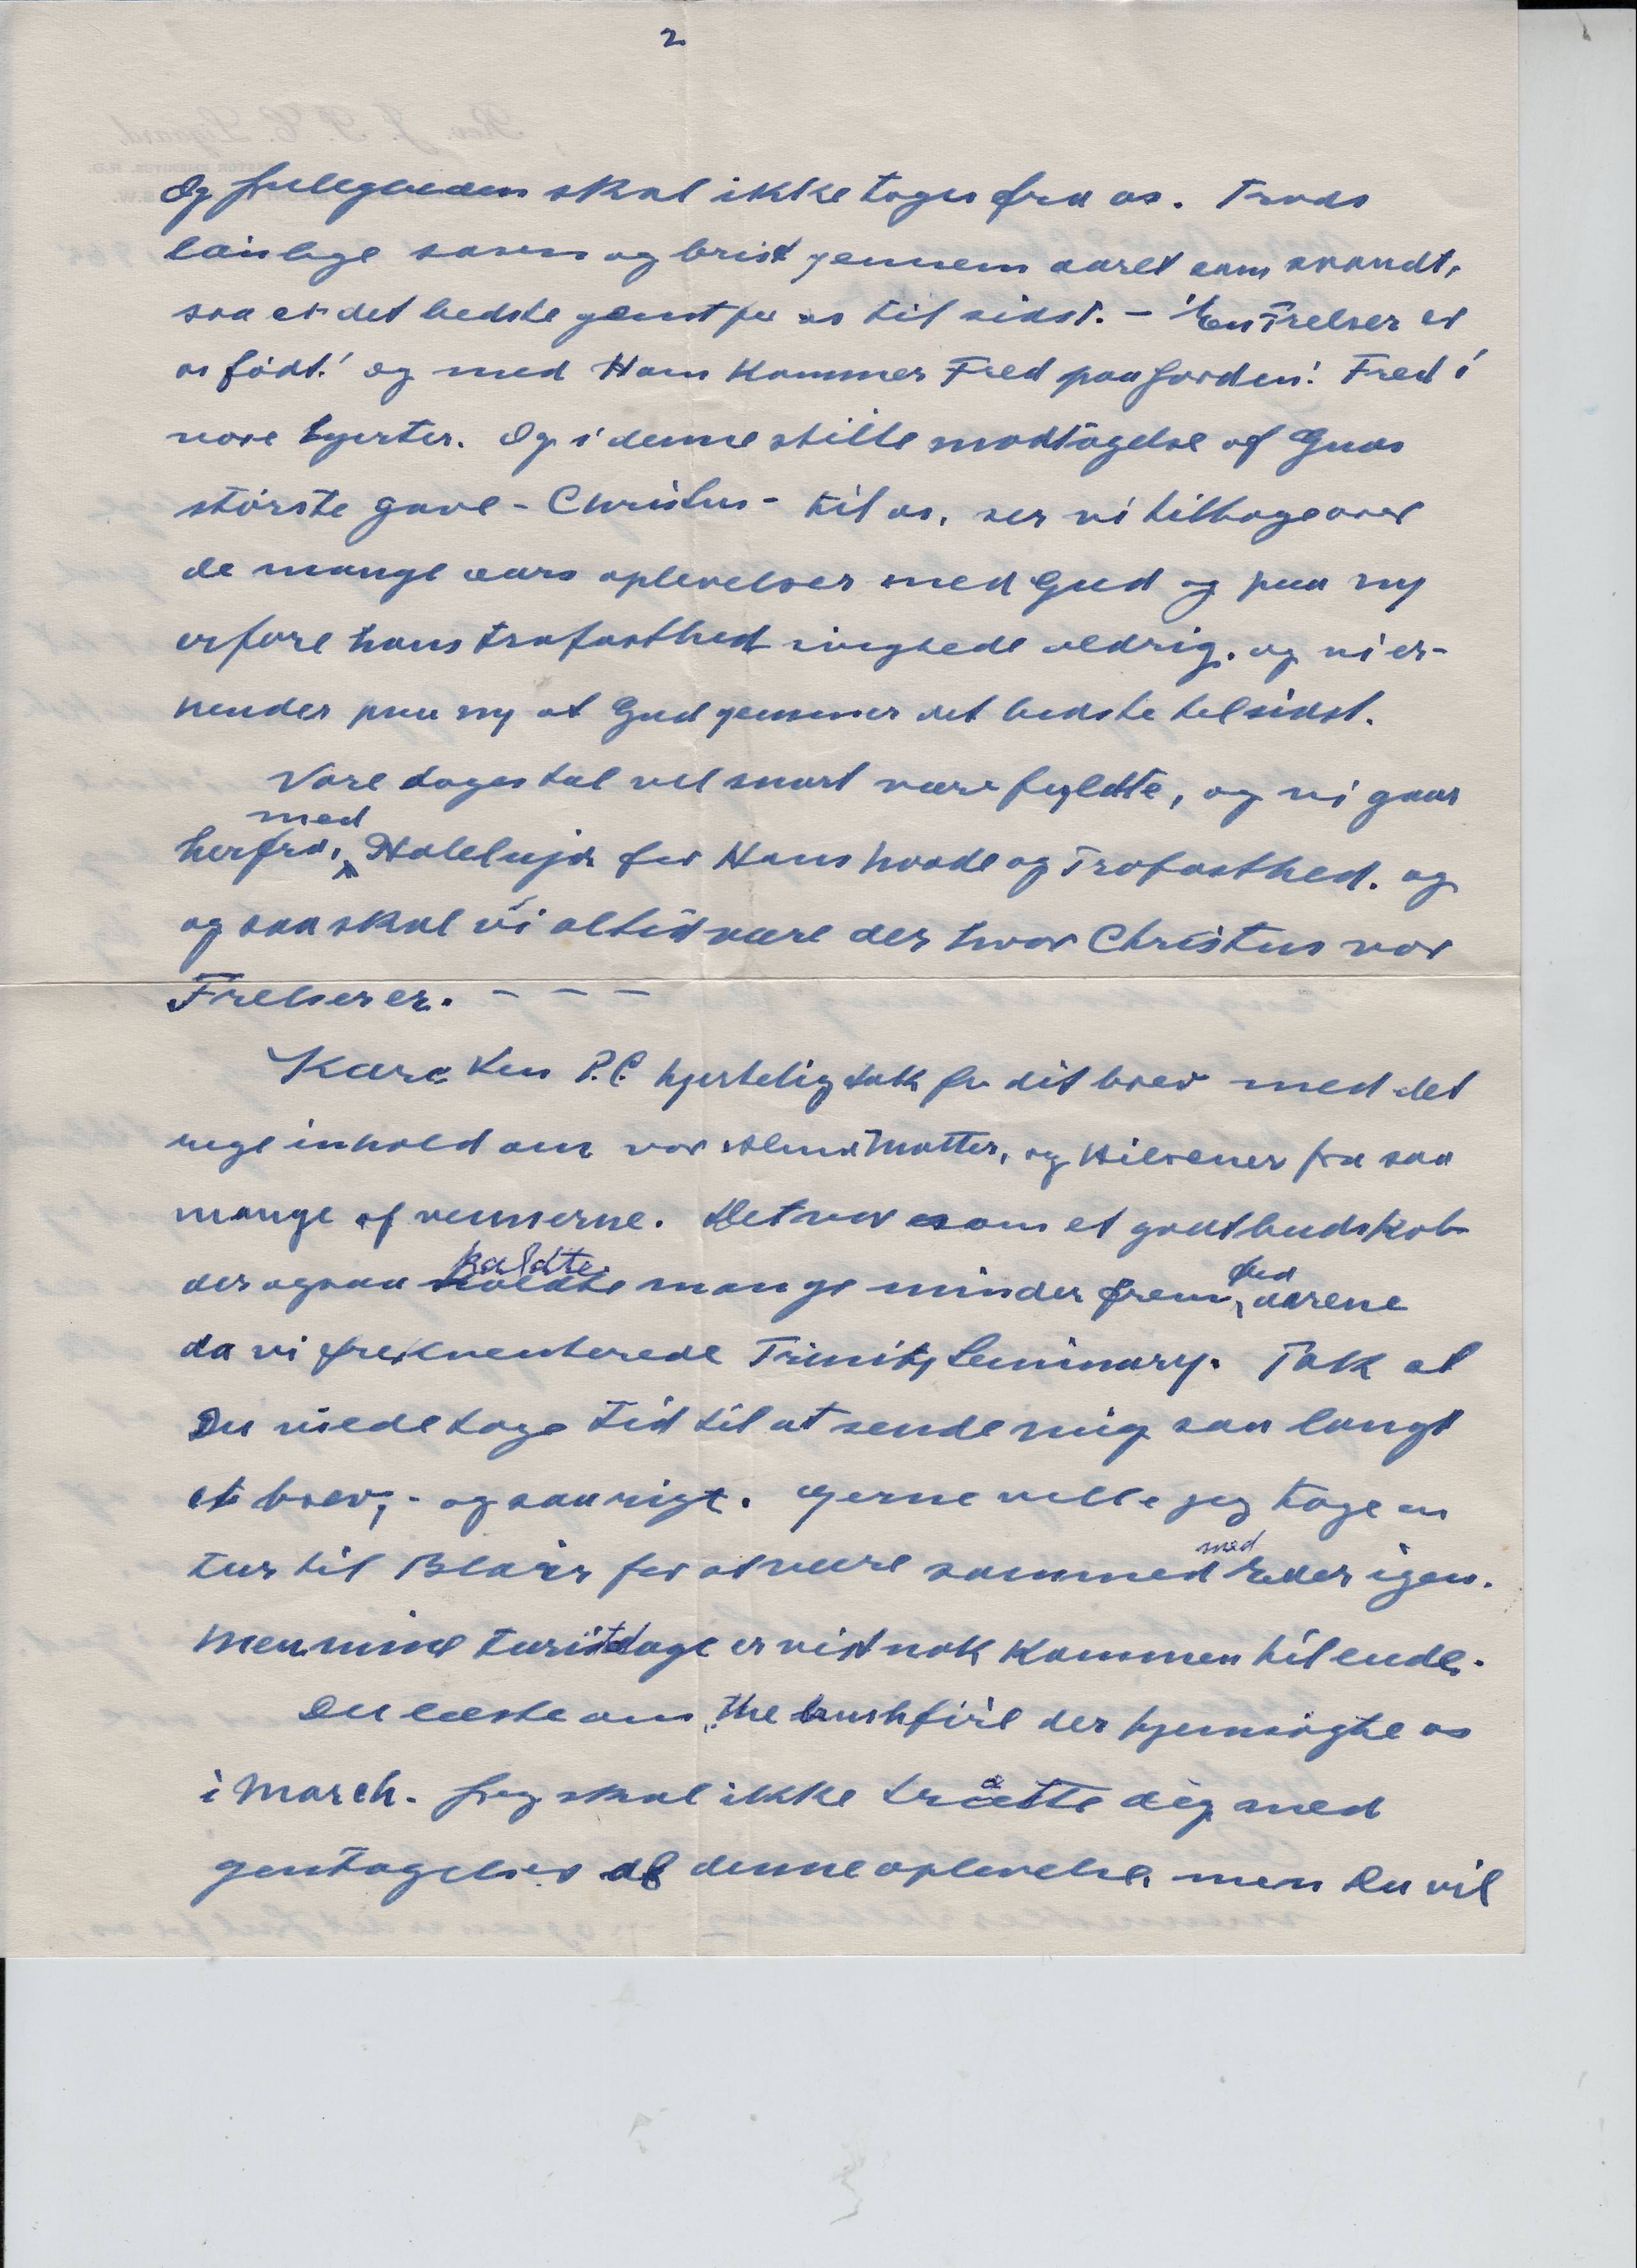 2
Og julegleden skal ikke tages fra os. Trods
lønlige savn og brist gennem aaret som svandt,
saa er det bedste gemt for os til sidst. – 'En Frelser er
os født.' og med Ham kommer Fred paa Jorden! Fred i
vore hjerter. Og i denne stille modtagelse af Guds
største gave - Christus - til os, ser vi tilbage over
de mange aars oplevelser med Gud og paa ny
erfare hans trofasthed svigtede aldrig. og vi er-
kender paa ny at Gud gemmer det bedste til sidst.
Vore dages tal vel snart være fyldte, og vi gaar
herfra, med Haleluja for Hans naade og Trofasthed. og
og saa skal vi altid være der hvor Christus vor
Frelser er. – – –
Kære Ven P.C. hjertelig tak for dit brev med det
rige inhold om vor Alma Matter, og Hilsener fra saa
mange af vennerne. Det var som et godt budskab
der ogsaa kaldte mange minder frem, fra aarene
da vi frekventerede Trinity Seminary. Tak at
Du vilde tage Tid til at sende mig saa langt
et brev, - og saa rigt. Gerne ville jeg tage en
tur til Blair for at være sammed med Eder igen.
Men mine turistdage er vist nok kommen til ende.
Du læste om "the bushfire der hjemsøgte os
i March. Jeg skal ikke trætte dig med
gentagelser af denne oplevelse, men Du vil